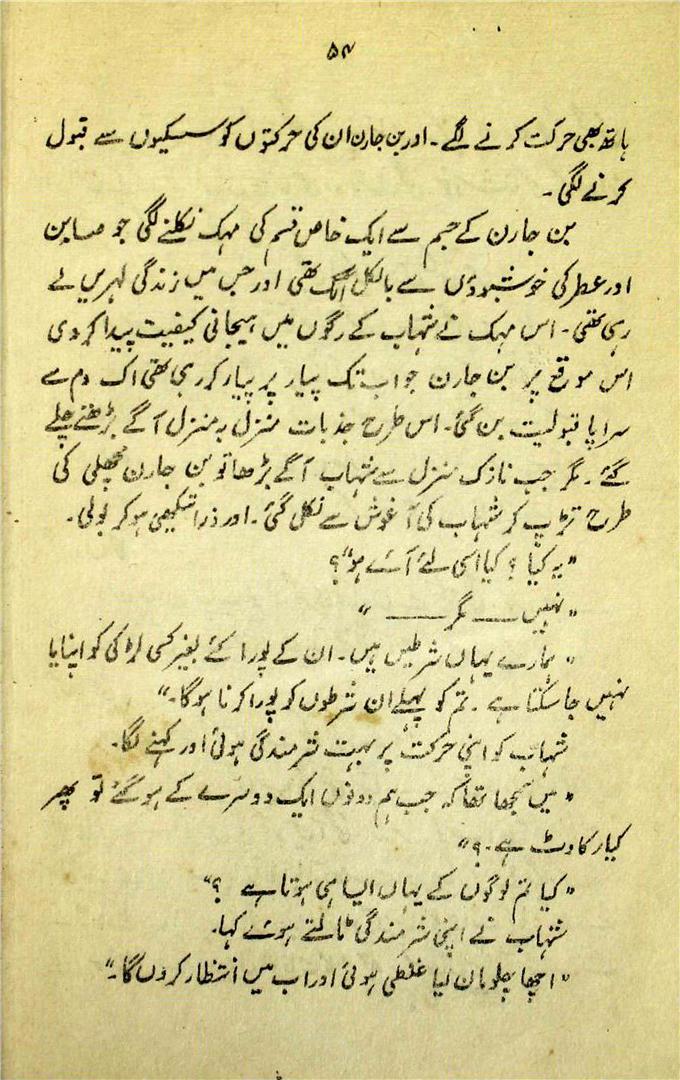 ۵۴
ہاتھ بھی حرکت کرنے لگے۔ اور بن جارن ان کی حرکتوں کو سسکیوں سے قبول
کرنے لگی۔
بن جارن کے جسم سے ایک خاص قسم کی مہک نکلنے لگی جو صابن
اور عطر کی خوشبوؤں سے بالکل الگ تھی اور جس میں زندگی لہریں لے
رہی تھی۔ اس مہک نے شہاب کے رگوں میں ہیجانی کیفیت پیدا کر دی
اس موقع پر بن جارن جو اب تک پیار پر پیار کر رہی تھی اک دم سے
سراپا قبولیت بن گئی۔ اس طرح جذبات منزل بہ منزل آگے بڑھتے چلے
گئے۔ مگر جب نازک منزل سے شہاب آگے بڑھا تو بن جارن مچھلی کی
طرح تڑپ کر شہاب کی آغوش سے نکل گئی۔ اور ذرا تیکھی ہو کر بولی۔
"یہ کیا؟ کیا اسی لئے آئے ہو"؟
"نہیں —— مگر ——"
"ہمارے یہاں شرطیں ہیں۔ ان کے پورا کئے بغیر کسی لڑکی کو اپنایا
نہیں جا سکتا ہے۔ تم کو پہلے ان شرطوں کو پورا کرنا ہوگا۔"
شہاب کو اپنی حرکت پر بہت شرمندگی ہوئی اور کہنے لگا۔
"میں سمجھا تھا کہ جب ہم دونوں ایک دوسرے کے ہو گئے تو پھر
کیا رکاوٹ ہے۔؟"
"کیا تم لوگوں کے یہاں ایسا ہی ہوتا ہے ؟"
شہاب نے اپنی شرمندگی ٹالتے ہوئے کہا۔
"اچھا چلو مان لیا غلطی ہوئی اور اب میں انتظار کروں گا۔"